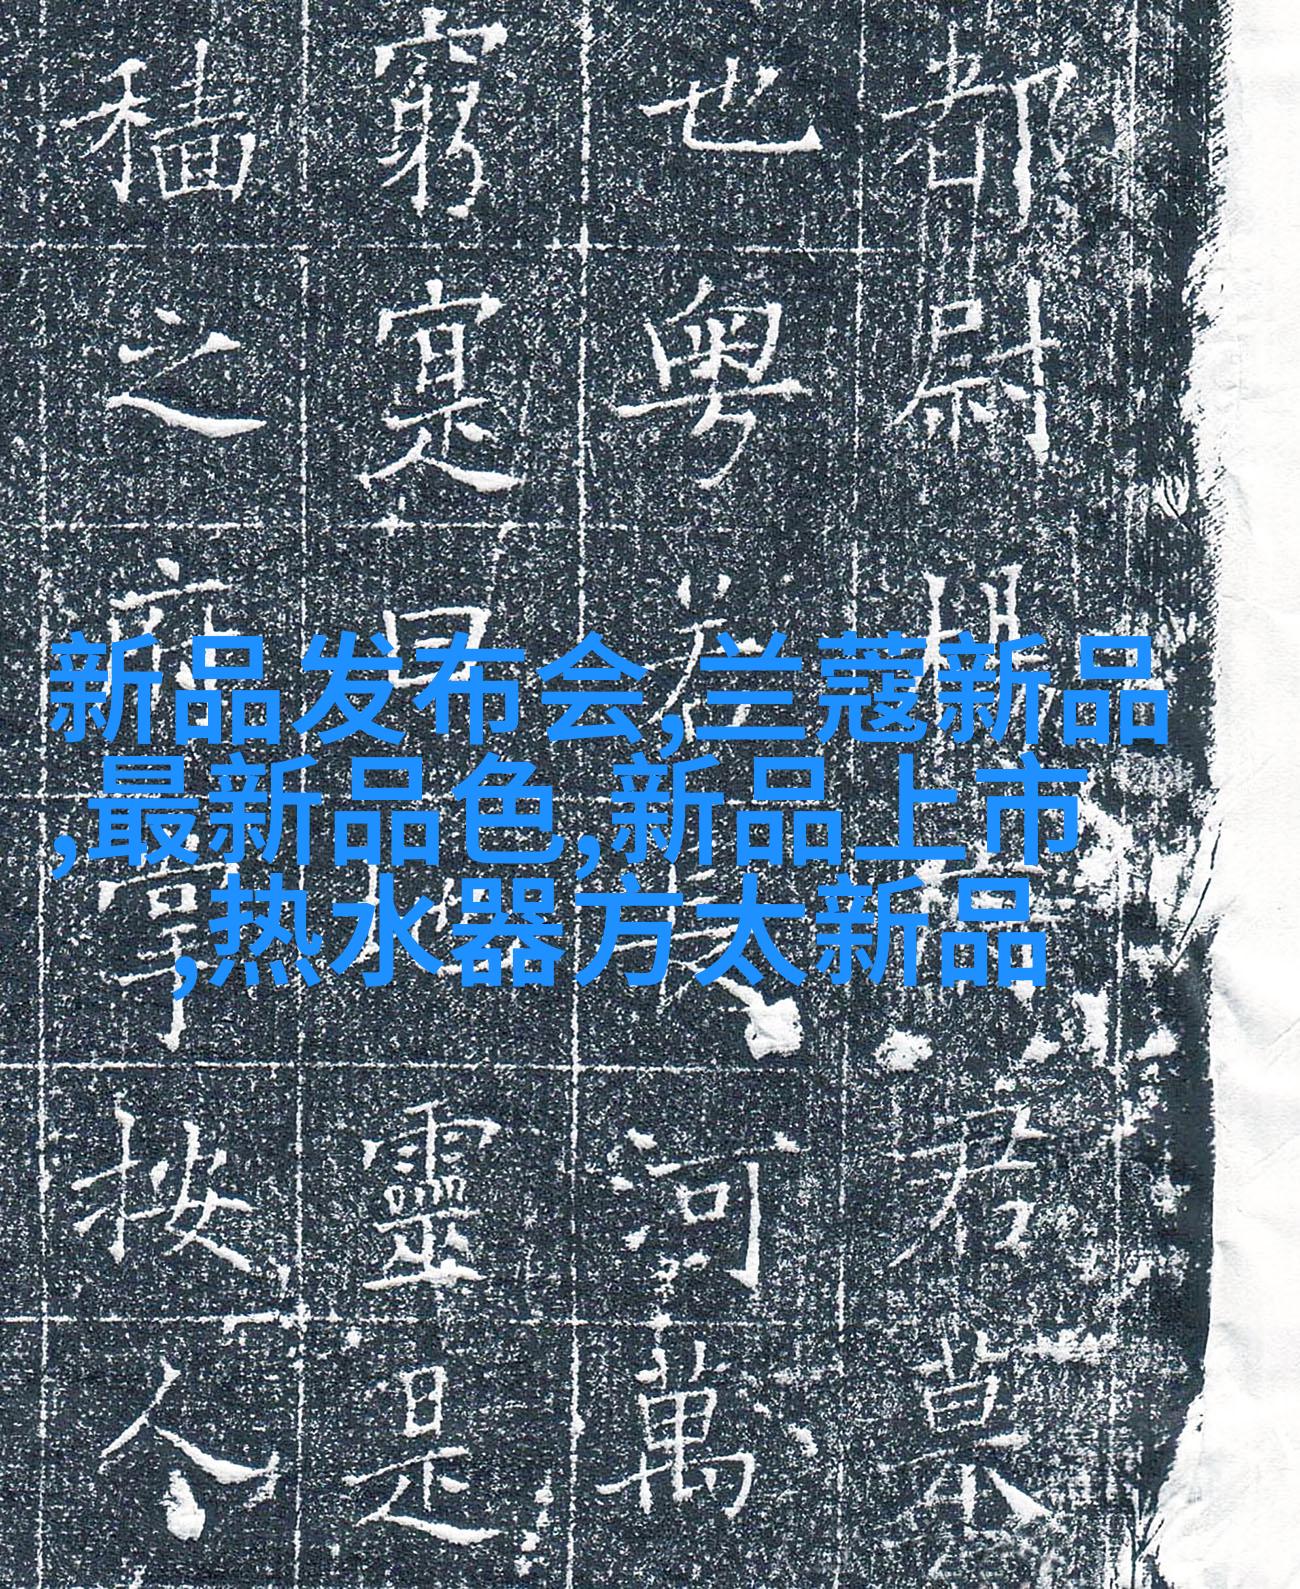 新品发布会,兰蔻新品
,最新品色,新品上市
,热水器方太新品
都尉君
也粤河萬
窮寔曰靈是
穡之按人